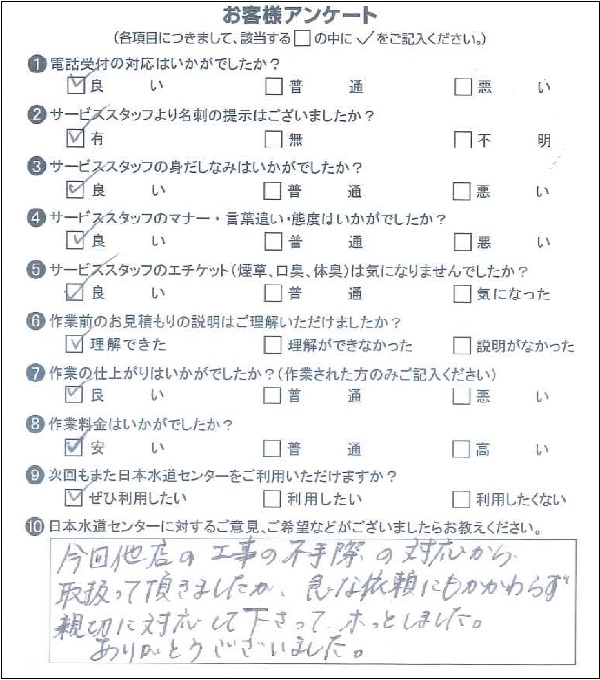 お客様アンケート
(各項目につきまして、該当する□の中に✓をご記入ください。)
❶電話受付の対応はいかがでしたか?
☑良い □普通 □悪い
❷サービススタッフより名刺の提示はございましたか?
☑有 □無 □不明
❸サービススタッフの身だしなみはいかがでしたか?
☑良い □普通 □悪い
❹サービススタッフのマナー・言葉遣い・態度はいかがでしたか?
☑良い □普通 □悪い
❺サービススタッフのエチケット(煙草、口臭、体臭)は気になりませんでしたか?
☑良い □普通 □気になった
❻作業前のお見積もりの説明はご理解いただけましたか?
☑理解できた □理解ができなかった □説明がなかった
❼作業の仕上がりはいかがでしたか?(作業された方のみご記入ください)
☑良い □普通 □悪い
❽作業料金はいかがでしたか?
☑安い □普通 □高い
❾次回もまた日本水道センターをご利用いただけますか?
☑ぜひ利用したい □利用したい □利用したくない
❿日本水道センターに対するご意見、ご希望などがございましたらお教えください。
今回他店の工事の不手際の対応から
取扱って頂きましたが、急な依頼にもかかわらず
親切に対応して下さって ホッとしました。
ありがとうございました。